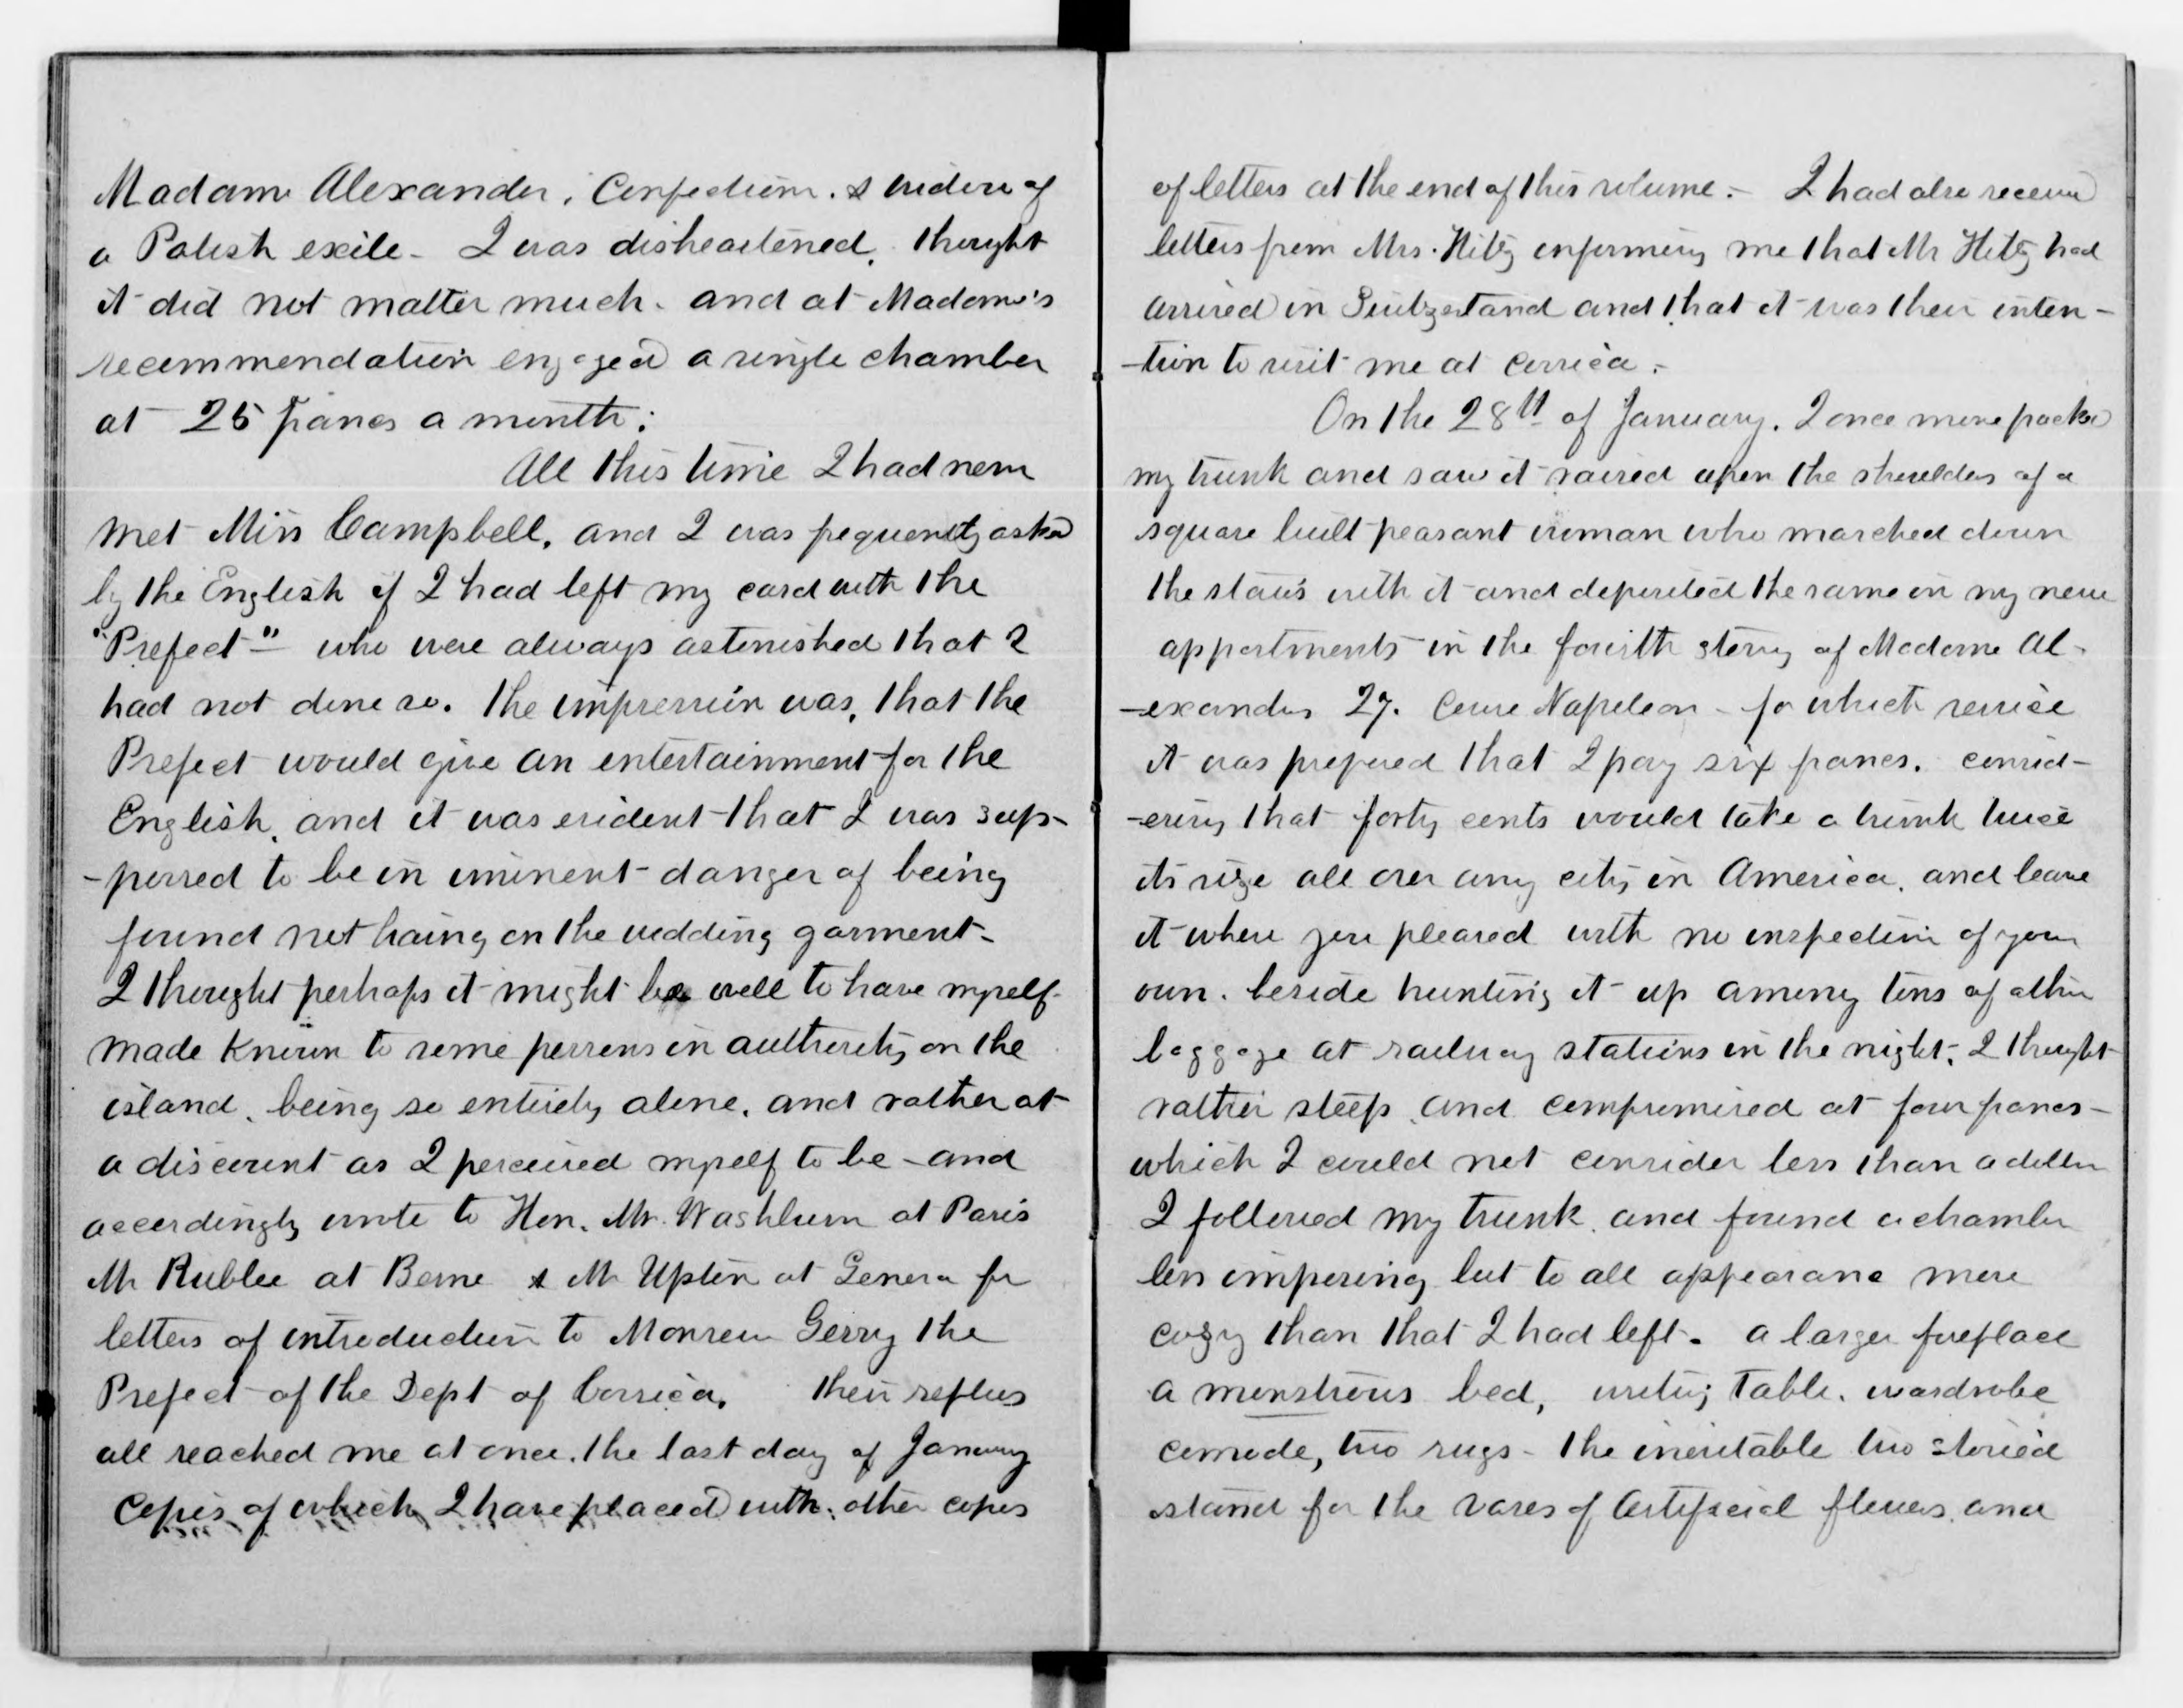 Madame Alexander, Confectioner. & widow of
a Polish exile - I was disheartened. thought
it did not matter much. and at Madame's
recommendation engaged a single chamber
at 25 francs a month.
All this time I had never
met Miss Campbell, and I was frequently asked
by the English if I had left my card with the
"Prefect" - who were always astonished that I
had not done so. The impression was, that the
Prefect would give an entertainment for the
English, and it was evident that I was sup-
-posed to be in iminent danger of being
found not having on the wedding garment -
I thought perhaps it might be well to have myself
made known to some persons in authority on the
island, being so entirely alone, and rather at
a discount as I perceived myself to be - and
accordingly wrote to Hon. Mr. Washburn at Paris
Mr Rublee at Berne & Mr Upton at Geneva for
letters of introduction to Monsieur Gerry the
Prefect of the Dept of Corsica. Their replies
all reached me at once. the last day of January
Copies of which I have placed with other copies
of letters at the end of this volume. - I had also received
letters from Mrs. Hitz informing me that Mr Hitz had
arrived in Switzerland and that it was their inten-
-tion to visit me at Corsica. -
On the 28th of January. I once more packed
my trunk and saw it raised upon the shoulders of a
square built peasant woman who marched down
the stairs with it and deposited the same in my new
appartments in the fourth story of Madame Al-
-exanders 27. Cour Napoleon - for which service
it was proposed that I pay six francs. consid-
-ering that forty cents would take a trunk twice
its size all over any city in America, and leave
it where you pleased with no inspection of your
own. beside hunting it up among tons of other
baggage at railway stations in the night, I thought
rather steep, and compromised at four francs -
which I could not consider less than a dollar
I followed my trunk, and found a chamber
less imposing but to all appearance more
cozy than that I had left. a larger fireplace
a monstrous bed, writing table. wardrobe
comode, two rugs - the inevitable two storied
stand for the vases of Artificial flowers, and